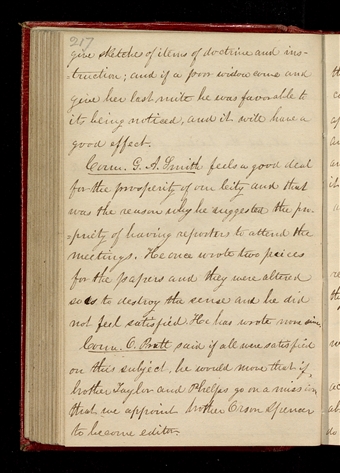 217
give sketches of items of doctrine and ins-
-truction; and if a poor widow come and
give her last mite he was favorable to
its being noticed, and it will have a
good effect.
Coun. G. A. Smith feels a good deal
for the prosperity of our City and that
was the reason why he suggested the pro-
-priety of having reporters to attend the
meetings. He once wrote two peices
for the papers and they were altered
so as to destroy the sense and he did
not feel satisfied. He has wrote none since.
Coun. O. Pratt said if all were satisfied
on this subject, he would move that if
brother Taylor and Phelps go on a mission
that we appoint brother Orson Spencer
to become editor.